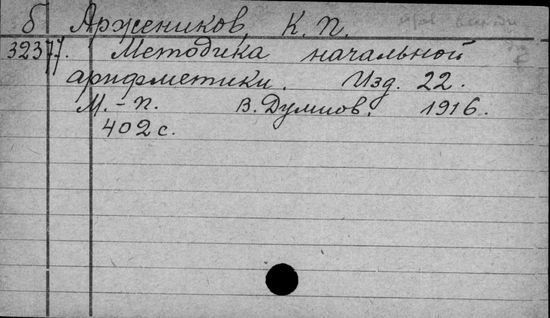 б Аржеников, К. П.
32377. Методика начальной
арифметики. Изд. 22.
М.-П. В. Думнов. 1916.
402 с.